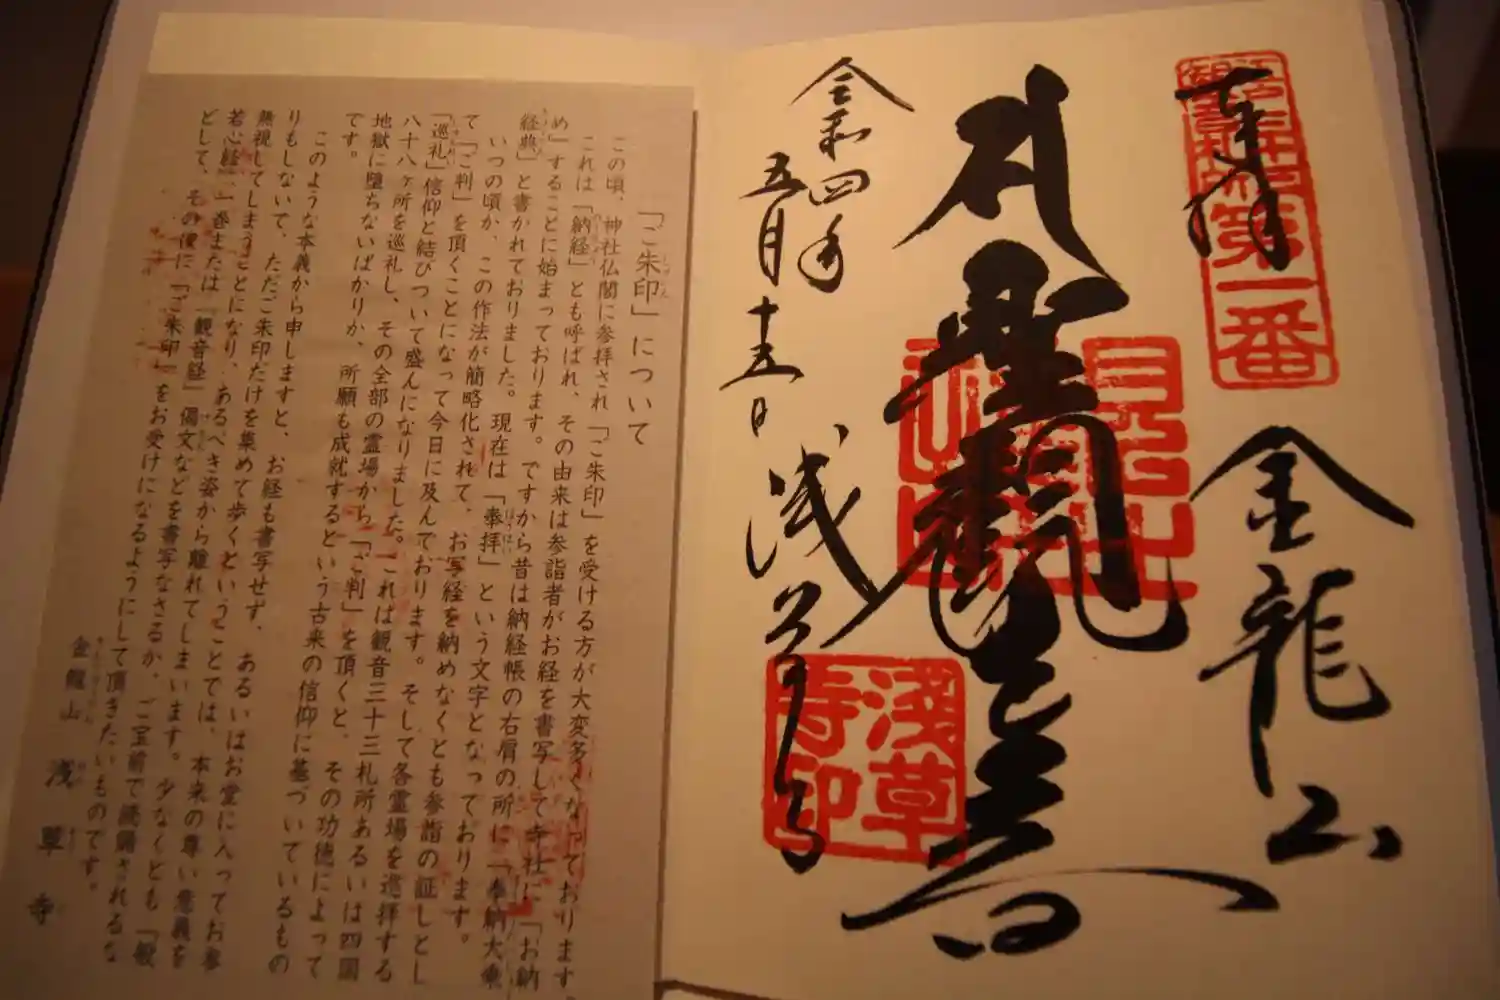 奉拝
江戸三十三箇所観音札所第一番
金龍山
聖観音
令和四年
五月十五日
浅草寺
浅草寺印
「ご朱印」について
この頃、神社仏閣に参拝され「ご朱印」を受ける方が大変多くなっております。
これは「納経」とも呼ばれ、その由来は参詣者がお経を書写して寺社に「お納
め」することに始まっております。ですから昔は納経帳の右肩の所に「奉納大乗
経典」と書かれておりました。現在は「奉拝」という文字となっております。
いつの頃か、この作法が簡略化されて、お写経を納めなくとも参詣の証しとし
て「ご判」を頂くことになって今日に及んでおります。そして各霊場を巡拝する
「巡礼」信仰と結びついて盛んになりました。これは観音三十三札所あるいは四国
八十八ヶ所を巡礼し、その全部の霊場から「ご判」を頂くと、その功徳によって
地獄に堕ちないばかりか、所願も成就するという古来の信仰に基づいているもの
です。
このような本義から申しますと、お経も書写せず、あるいはお堂に入ってお参
りもしないで、ただご朱印だけを集めて歩くということでは、本来の尊い意義を
無視してしまうことになり、あるべき姿から離れてしまいます。少なくとも『般
若心経』一巻または『観音経』偈文などを書写なさるか、ご宝前で読誦されるな
どして、その後に「ご朱印」をお受けになるようにして頂きたいものです。
金龍山 浅草寺